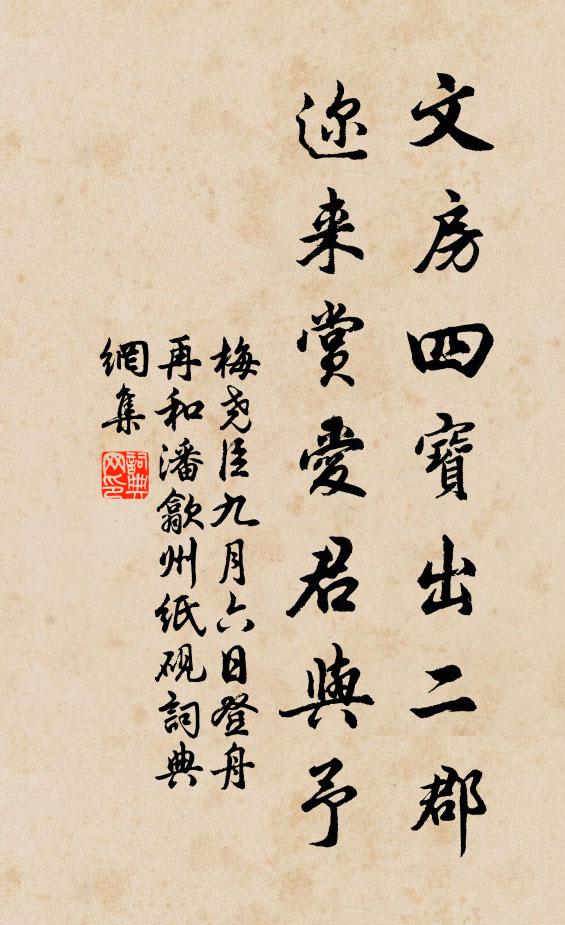 文房四寶出二郡
迩来賞愛君與予
梅尧臣九月六日登舟
再和潘歙州纸砚詞典
網集
詞典網印